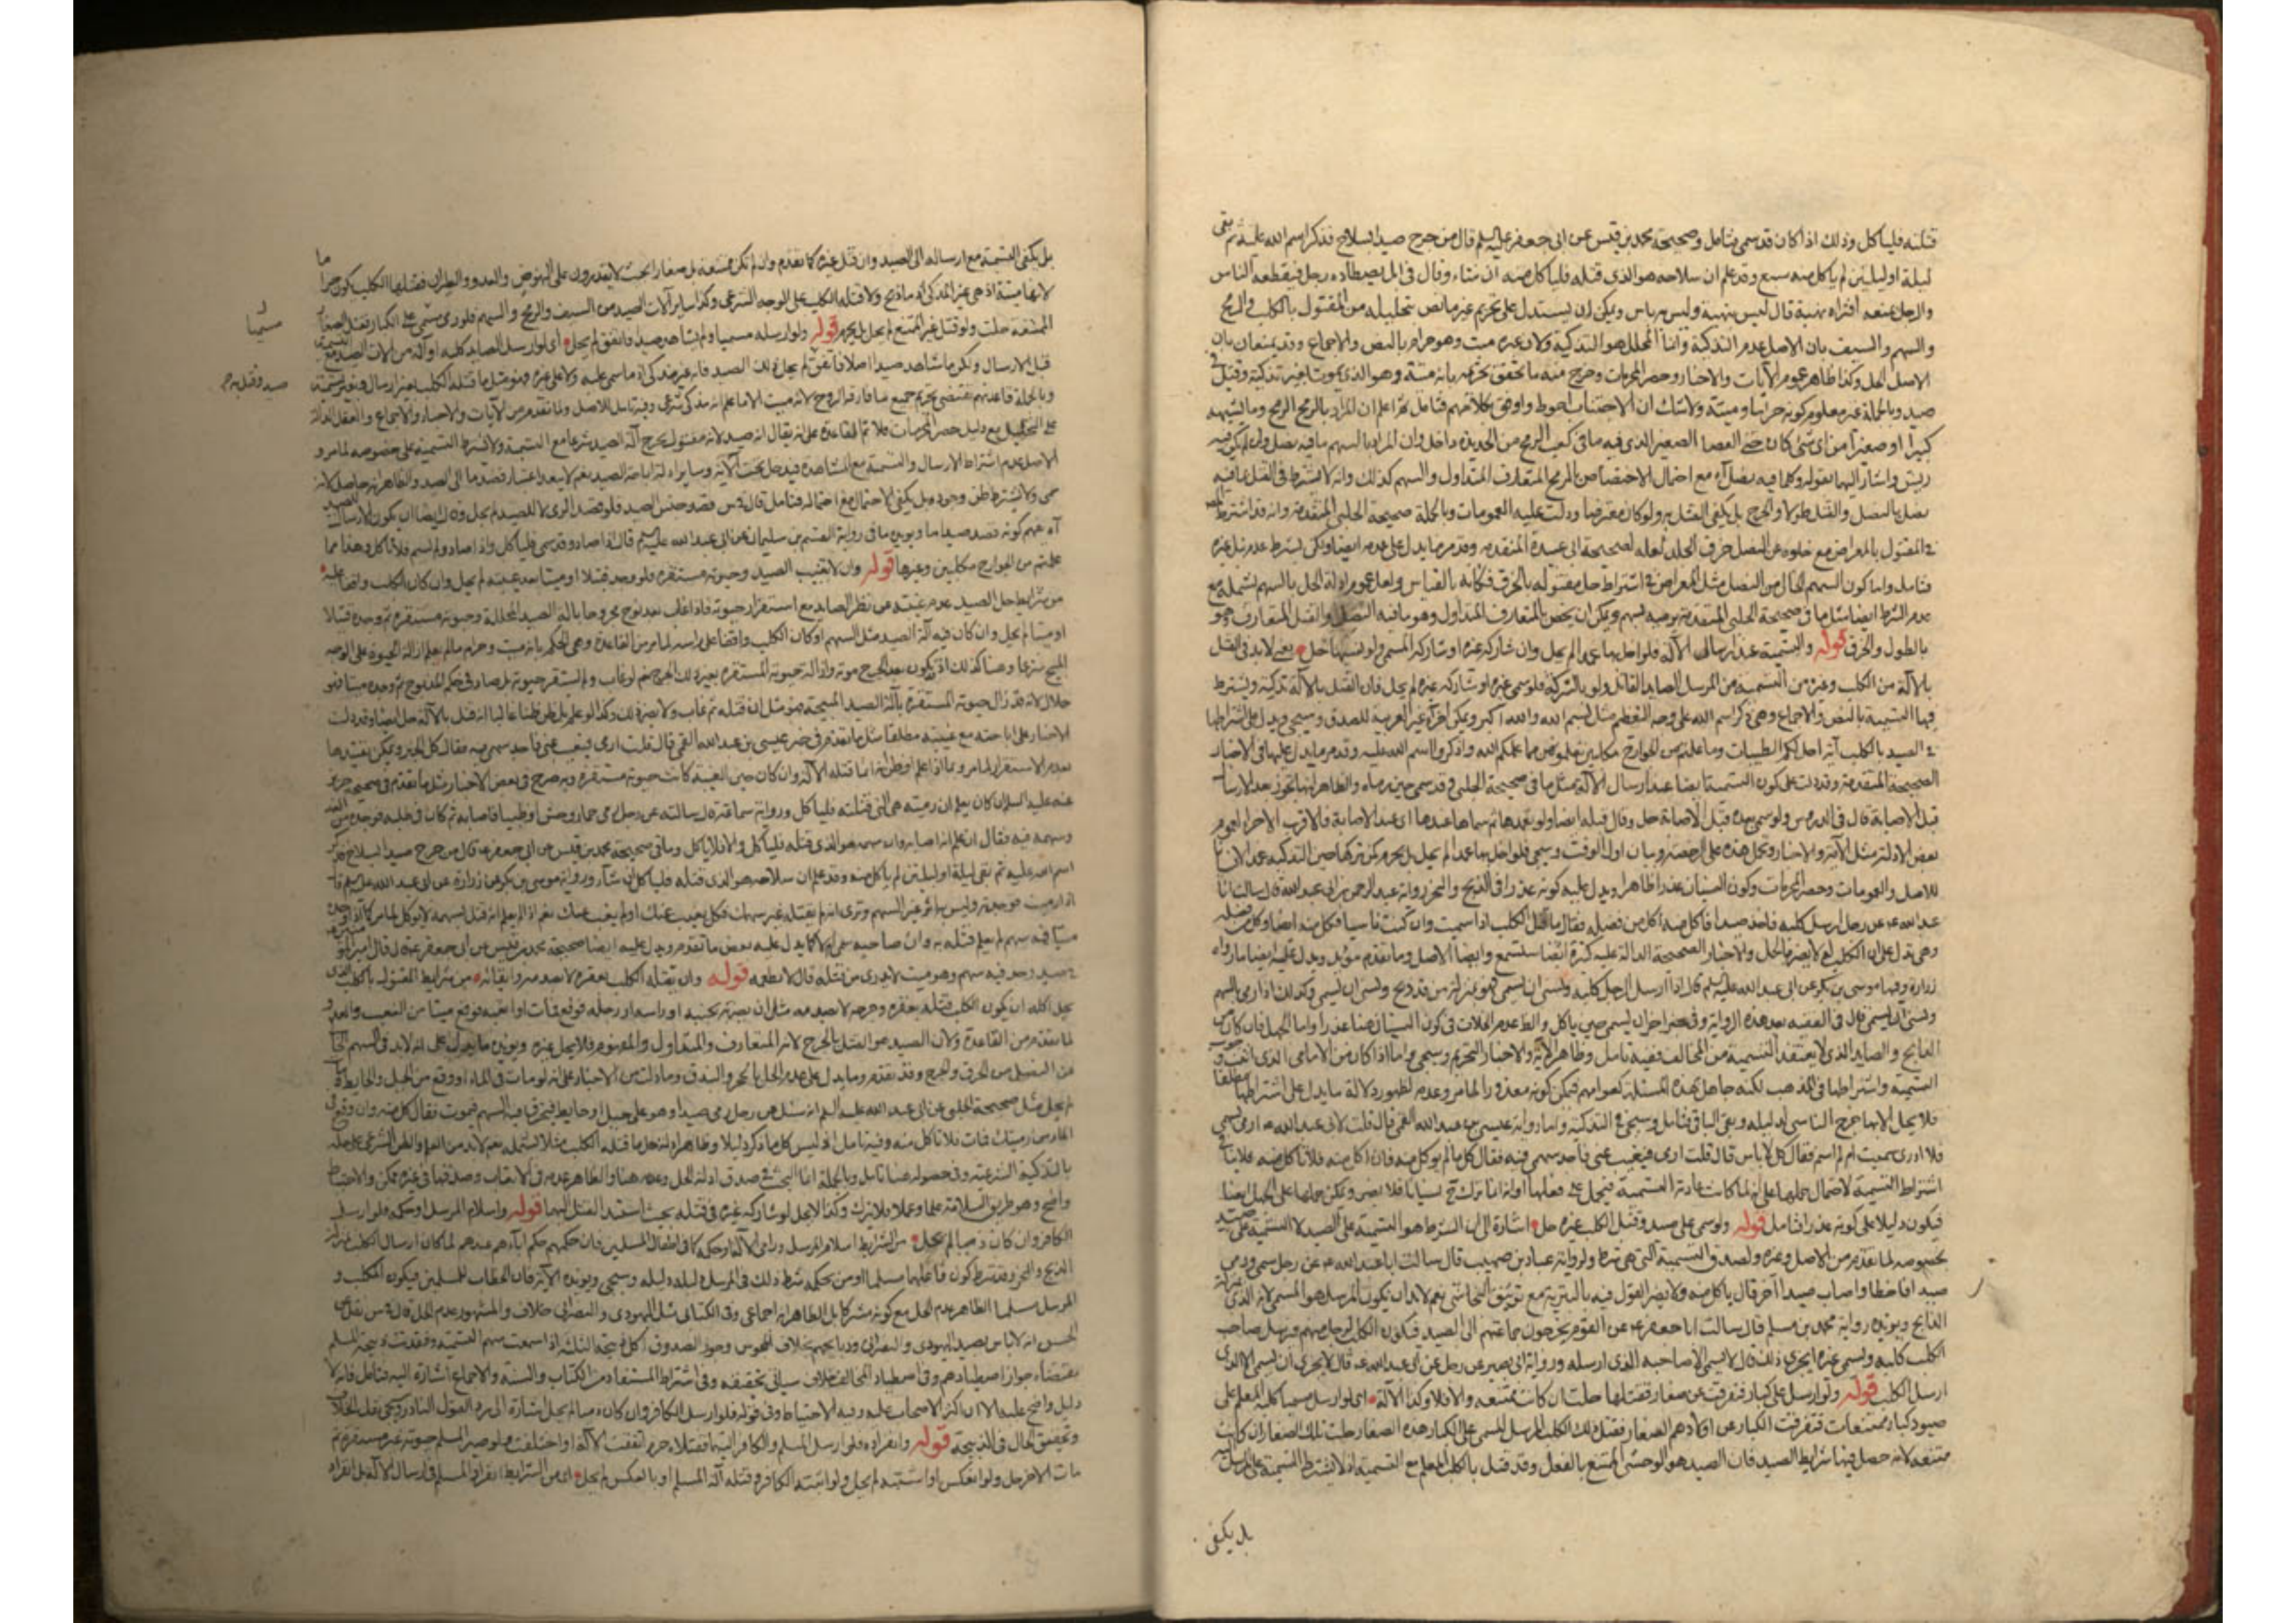 قتلته فلياكل وذلك اذا كان قد سمى فتامل وصحيحة محمد بن قيس عن ابى جعفر عليه السلم قال من جرح صيدا بسلاح فذكر اسم الله عليه ثم بقى
ليلة او ليلتين لم ياكل منه سبع وقد علم ان سلاحه هو الذى قتله فلياكل منه ان شاء وقال فى ايل يصطاده رجل فيقطعه الناس
والرجل يمنعه افتراه نهبة قال ليس بنهبة وليس به باس ويمكن ان يستدل على تحريم غير ما نص بتحليله من المقتول بالكلب والرمح
والسهم والسيف بان الاصل عدم التذكية وانما المحلل هو التذكية ولان غيره ميت وهو حرام بالنص والاجماع وقد يمنعان بان
الاصل الحل وكذا ظاهر عموم الآيات والاخبار وحصر المحرمات وخرج منه ما تحقق تحريمه بانه ميتة وهو الذى يموت بغير تذكية وقتل
صيد وبالجملة غير معلوم كونه حراما وميتة ولا شك ان الاجتناب احوط واوفق بكلامهم فتامل ثم اعلم ان المراد بالرمح الرمح وما اشبهه
كبيرا او صغيرا من اى شئ كان حتى العصا الصغير الذى فيه ما فى كعب الرمح من الحديد داخل وان المراد بالسهم ما فيه نصل وان لم يكن فيه
ريش واشار اليهما بقوله وكلما فيه نصل آه مع احتمال الاختصاص بالرمح المتعارف المتداول والسهم كذلك وانه لا يشترط فى القتل بما فيه
نصل بالنصل والقتل طولا والجرح بل يكفى القتل به ولو كان معترضا ودلت عليه العمومات وبالجملة صحيحة الحلبى المتقدمة وانه قد اشترط
فى المقتول بالمعراض مع خلوه عن النصل خرق الجلد لعله لصحيحة ابى عبيدة المتقدمة وقد مر ما يدل على عدمه ايضا
فتامل واما كون السهم الخالى من النصل مثل المعراض فى اشتراط حل مقتوله بالخرق فكانه بالقياس ولعل عموم ادلة الحل بالسهم تشمله مع
عدم الشرط ايضا مثل ما فى صحيحة الحلبى المتقدمة يرميه بسهم ويمكن ان يخص بالمتعارف المتداول وهو ما فيه النصل والقتل المتعارف وهو
بالطول والخرق قوله والتسمية عند ارسال الآلة فلو اخل بها عمدا لم يحل وان شاركه غيره او شاركه المسمى ولو نسيها حل يعنى لابد فى القتل
بالآلة من الكلب وغيره من التسمية من المرسل الصايد القاتل ولو بالشركة فلو سمى غيره او شاركه غيره لم يحل فان القتل بالآلة تذكية ويشترط
فيها التسمية بالنص والاجماع وهى ذكر اسم الله على وجه التعظيم مثل بسم الله والله اكبر ويمكن اجزاء غير العربية للصدق وسيجى ويدل على اشتراطها
فى الصيد بالكلب آية احل لكم الطيبات وما علمتم من الجوارح مكلبين تعلمونهن مما علمكم الله واذكروا اسم الله عليه وقد مر ما يدل عليها فى الاخبار
الصحيحة المتقدمة وقد دلت على كون التسمية ايضا عند ارسال الآلة مثل ما فى صحيحة الحلبى وقد سمى حين رماه والظاهر انها تجوز بعد الارسال
قبل الاصابة قال فى الدروس ولو سمى بعده قبل الاصابة حل وقال قبله ايضا ولو تعمدها ثم سماها عندها اى عند الاصابة فالاقرب الاجزاء لعموم
بعض الادلة مثل الآية والاخبار وتحمل هذه على الرخصة وبيان اول الوقت وسيجى فلو اخل بها عمدا لم يحل بل يحرم كمن تركها حين التذكية عمدا
للاصل والعمومات وحصر المحرمات وكون النسيان عذرا ظاهرا ويدل عليه كونه عذرا فى الذبح والنحر رواية عبد الرحمن بن ابى عبد الله قال سالت ابا
عبد الله عن رجل ارسل كلبه فاخذ صيدا فاكل منه اكل من فضله فقال ما قتل الكلب اذا سميت وان كنت ناسيا فكل منه ايضا وكل فضله
وهى تدل على ان اكل الكلب لا يضر بالحل والاخبار الصحيحة الدالة عليه كثرة ايضا ستسمع وايضا الاصل وما تقدم مؤيد ويدل عليه ايضا ما رواه
زرارة وفيها موسى بن بكر عن ابى عبد الله عليه السلم قال اذا ارسل الرجل كلبه ونسى ان يسمى فهو بمنزلة من قد ذبح ونسى ان يسمى وكذلك اذا رمى بالسهم
ونسى ان يسمى قال فى الفقيه بعد هذه الرواية وفى خبر اخر ان يسمى حين ياكل والظ عدم الخلاف فى كون النسيان هنا عذرا واما الجهل فان كان من
الذابح والصايد الذى لا يعتقد التسمية من المخالف ففيه تامل وظاهر الآية والاخبار التحريم وسيجى واما اذا كان من الامامى الذى
التسمية واشتراطها فى المذهب لكنه جاهل بهذه المسئلة كعوامهم فيمكن كونه معذورا لما مر وعدم ظهور دلالة ما يدل على اشتراطها مطلقا
فلا يحل الا بها خرج الناسى لدليله وبقى الباقى فتامل وسيجى فى التذكية واما رواية عيسى بن عبد الله القمى قال قلت لابى عبد الله ارمى بسهمى
فلا ادرى سميت ام لم اسم فقال كل لا باس قال قلت ارمى فيغيب عنى فاجد سهمى فيه فقال كل ما لم يوكل منه فان اكل منه فلا تاكل منه
اشتراط التسمية لاحتمال حملها على انه لما كانت عادته التسمية فيحمل على فعلها او انه انما ترك ح نسيانا فلا يضر ويمكن حملها على الجهل ايضا
فيكون دليلا على كونه عذرا فتامل قوله ولو سمى على صيد وقتل الكلب غيره حل اشارة الى ان الشرط هو التسمية على الصيد لا التسمية على صيد
بخصوصه لما تقدم من الاصل وغيره ولصدق التسمية التى هى شرط ولرواية عباد بن صهيب قال سالت ابا عبد الله عن رجل سمى ورمى
صيدا فاخطا واصاب صيدا آخر قال ياكل منه ولا يضر القول فيه بالبترية مع توثيق النجاشى نعم لابد ان يكون المرسل هو المسمى لانه بمنزلة
الذابح ويويده رواية محمد بن مسلم قال سالت ابا جعفر عن القوم يخرجون جماعتهم الى الصيد فيكون الكلب لرجل منهم ويرسل صاحب
الكلب كلبه ويسمى غيره ايجزى ذلك قال لا يسمى الا صاحبه الذى ارسله ورواية ابى بصير عن رجل عن ابى عبد الله قال لا يجزى ان يسمى الا الذى
ارسل الكلب قوله ولو ارسل على كبار فتفرقت عن صغار فقتلها حلت ان كانت ممتنعة والا فلا وكذا الآلة اى لو ارسل مسميا كلبه المعلم على
صيود كبار ممتنعات فتفرقت الكبار عن اولادهم الصغار فقتل ذلك الكلب المرسل المسمى على الكبار هذه الصغار حلت تلك الصغار ان كانت
ممتنعة لانه حصل فيها شرايط الصيد فان الصيد هو الوحشى الممتنع بالفعل وقد قتل بالكلب المعلم مع التسمية اذ لا يشترط التسمية على المرسل
بل يكفى
بل يكفى التسمية مع ارساله الى الصيد وان قتل غيره كما تقدم وان لم تكن ممتنعة بل صغارا بحيث لا يقدرون على النهوض والعدو والطيران فقتلها الكلب يكون حراما
لانها ميتة اذ هى غير المذكى اذ ما ذبح ولا قتله الكلب على الوجه الشرعى وكذا ساير آلات الصيد من السيف والرمح والسهم فلو رمى بسهم على الكبار فقتل الصغار
الممتنعة حلت ولو قتل غير الممتنع لم يحل بل يحرم قوله ولو ارسله مسميا ولم يشاهد صيدا واتفق لم يحل اى لو ارسل الصايد كلبه او آلة من آلات الصيد مع التسمية
قبل الارسال ولكن ما شاهد صيدا اصلا فاتفق لم يحل ذلك الصيد فانه غير مذكى اذ ما سمى عليه ولا على غيره فهو مثل ما قتله الكلب من غير ارسال
وبالجملة قاعدتهم تقتضى تحريم جميع ما فارقه الروح لانه ميت الا ما علم انه مذكى شرعى وفيه تامل للاصل ولما تقدم من الآيات والاخبار والاجماع والعقل الدالة
على التحليل مع دليل حصر المحرمات فلا تتم القاعدة على انه يقال انه صيد لانه مقتول بجرح آلة الصيد شرعا مع التسمية ولا يشترط التسمية على خصوصه لما مر و
الاصل عدم اشتراط الارسال والتسمية مع المشاهدة فيدخل تحت الآية وساير ادلة اباحة الصيد نعم لا يبعد اعتبار قصد ما الى الصيد والظاهر انه حاصل لانه
سمى ولا يشترط ظن وجوده بل يكفى الاحتمال مع احتماله فتامل قال فى س قصد جنس الصيد فلو قصد الرمى لا للصيد لم يحل
آه فهم كونه قصد صيدا ما ويويده ما فى رواية القسم بن سليمان عن ابى عبد الله عليه السلم قال اذا صاد وقد سمى فلياكل واذا صاد ولم يسم فلا تاكل وهذا مما
علمتم من الجوارح مكلبين وغيرها قوله وان لا يغيب الصيد وحيوته مستقرة فلو وجد قتيلا او ميتا بعد غيبته لم يحل وان كان الكلب واقفا عليه
من شرايط حل الصيد عدم غيبته عن نظر الصايد مع استقرار حيوته فاذا غاب بعد ان جرح مجروحا بآلة الصيد المحللة وحيوته مستقرة ثم وجده قتيلا
او ميتا لم يحل وان كان فيه آلة الصيد مثل السهم او كان الكلب واقفا على راسه لما مر من القاعدة وهى الحكم بانه ميت وحرام ما لم يعلم ازالة الحيوة على الوجه
المبيح شرعا وهنا كذلك اذ قد يكون بعد الجرح موته وازالة حيوته المستقرة بغير ذلك الجرح نعم لو غاب ولم يستقر حيوته بل صار فى حكم المذبوح ثم وجده ميتا فهو
حلال لانه قد زال حيوته المستقرة بآلة الصيد المبيحة فهو مثل ان قتله ثم غاب ولا يضره ذلك وكذا لو علم بل ظن ظنا غالبا انه قتل بالآلة حل ايضا وقد دلت
الاخبار على اباحته مع غيبته مطلقا مثل ما تقدم فى خبر عيسى بن عبد الله القمى قال قلت ارمى فيغيب عنى فاجد سهمى فيه فقال كل الخبر ويمكن تقييدها
بعدم الاستقرار لما مر وبما اذا علم او ظن انه انما قتله الآلة وان كان حين الغيبة كانت حيوته مستقرة وبه صرح فى بعض الاخبار مثل ما تقدم فى صحيحة حريز
عنه عليه السلام ان كان يعلم ان رميته هى التى قتلته فلياكل ورواية سماعة قال سالته عن رجل رمى حمار وحش او ظبيا فاصابه ثم كان فى طلبه فوجده من الغد
وسهمه فيه فقال ان علم انه اصابه وان سهمه هو الذى قتله فلياكل والا فلا ياكل وما فى صحيحة محمد بن قيس عن ابى جعفر قال من جرح صيدا بسلاح فذكر
اسم الله عليه ثم بقى ليلة او ليلتين لم ياكل منه وقد علم ان سلاحه هو الذى قتله فلياكل ان شاء ورواية موسى بن بكر عن زرارة عن ابى عبد الله عليه السلم قال
اذا رميت فوجدته وليس به اثر غير السهم وترى انه لم يقتله غير سهمك فكل يغيب عنك او لم يغب عنك نعم اذا لم يعلم انه قتل بسهمه لا يوكل لما مر كما اذا وجده
ميتا فيه سهم لم يعلم قتله به وان صاحبه سمى ام لا كما يدل عليه بعض ما تقدم ويدل عليه ايضا صحيحة محمد بن قيس عن ابى جعفر قال قال امير المؤمنين
فى صيد وجد فيه سهم وهو ميت لا يدرى من قتله قال لا يطعمه قوله وان يقتله الكلب بعقره لا بصدمه واتعابه من شرايط المقتول بالكلب الذى
يحل اكله ان يكون الكلب قتله بعقره وجرحه لا بصدمه مثل ان يضربه بجنبه او راسه او رجله فوقع فمات او اتعبه فوقع ميتا من التعب والعدو
لما تقدم من القاعدة ولان الصيد هو القتل بالجرح لانه المتعارف والمتداول والمفهوم فلا يحل غيره ويويده ما يدل على انه لابد فى السهم الخالى
عن النصل من الخرق والجرح وقد تقدم وما يدل على عدم الحل بالحجر والبندق وما دلت من الاخبار على انه لو مات فى الماء او وقع من الجبل والحايط فمات
لم يحل مثل صحيحة الحلبى عن ابى عبد الله عليه السلم انه سئل عن رجل رمى صيدا وهو على جبل او حايط فيخرق فيه السهم فيموت فقال كل منه وان وقع فى
الماء من رميتك فمات فلا تاكل منه وفيه تامل اذ ليس كل ما ذكر دليلا وظاهر ادلة حل ما قتله الكلب مثلا تشمله نعم لابد من العلم والظن الشرعى على حله
بالتذكية الشرعية وفى حصوله هنا تامل وبالجملة انما البحث فى صدق ادلة الحل وعدمه هنا والظاهر عدمه فى الاتعاب وصدقها فى غيره ممكن والاحتياط
واضح وهو طريق السلامة علما وعملا فلا يترك وكذا لا يحل لو شاركه غيره فى قتله بحيث استند القتل اليهما قوله واسلام المرسل او حكمه فلو ارسل
الكافر وان كان ذميا لم يحل من الشرايط اسلام المرسل ورامى الآلة او حكمه كما فى اطفال المسلمين فان حكمهم حكم آبائهم عندهم لما كان ارسال الكلب بمنزلة
الذبح والنحر وقد شرط كون فاعلهما مسلما او من بحكمه شرط ذلك فى المرسل ودليله دليله وسيجى ويويده الآية فان الخطاب للمسلمين فيكون المكلب و
المرسل مسلما الظاهر عدم الحل مع كونه مشركا بل الظاهر انه اجماعى وفى الكتابى مثل اليهودى والنصرانى خلاف والمشهور عدم الحل قال فى س نقل عن
الحسن انه لا باس بصيد اليهودى والنصرانى وذبايحهم بخلاف المجوس وجوز الصدوق اكل ذبيحة الثلثة اذا سمعت منهم التسمية وفقدت ذبيحة المسلم
بمقتضاه جواز اصطيادهم وفى اصطياد المخالف خلاف سياتى تحقيقه وفى اشتراط المستفاد من الكتاب والسنة والاجماع اشارة اليه فتامل فانه لا
دليل واضح عليه الا ان اكثر الاصحاب عليه وفيه الاحتياط وفى قوله فلو ارسل الكافر وان كان ذميا لم يحل اشارة الى رد القول النادر وسيجى نقل الخلاف
وتحقيق الحال فى الذبيحة قوله وانفراده فلو ارسل المسلم والكافر آلتيهما فقتلاه حرم اتفقت الآلة او اختلفت ولو صير المسلم حيوته غير مستقرة ثم
مات الآخر حل ولو انعكس او اشتبه لم يحل ولو اثبته الكافر وقتله آلة المسلم او بالعكس لم يحل اى من الشرايط انفراد المسلم فى ارسال الآلة قبل انفراد
مسميا